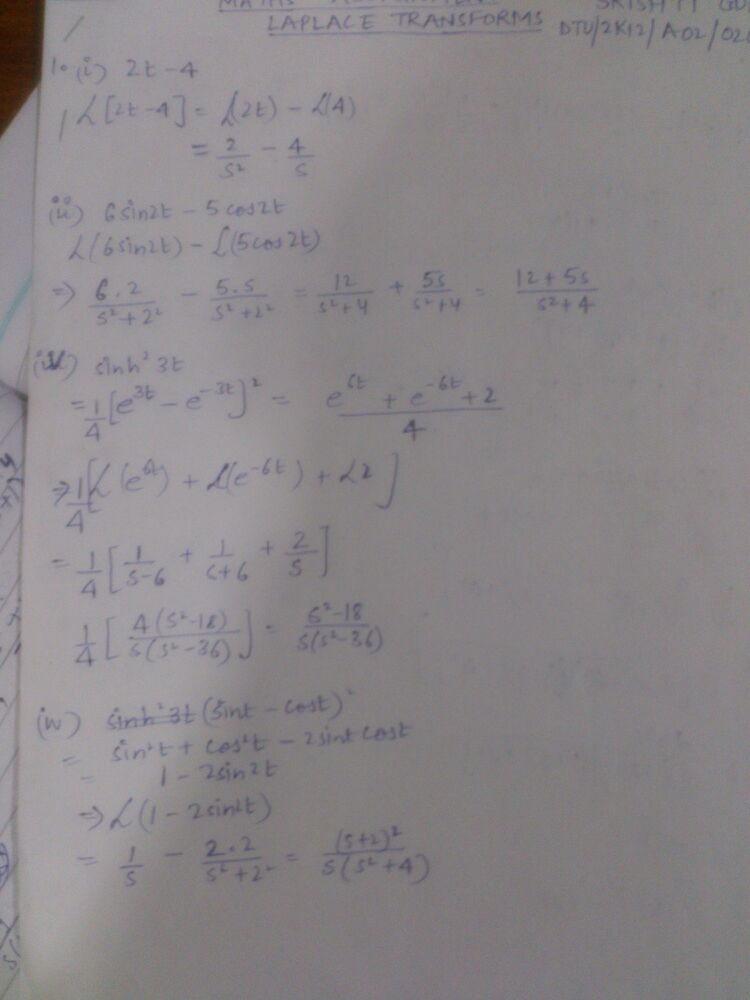 LAPLACE TRANSFORMS
DTU/2K12/A02/02
1. (i) 2t - 4
L[2t - 4] = L(2t) - L(4)
= 2/s² - 4/s
(ii) 6 sin2t - 5 cos2t
L(6 sin2t) - L(5 cos2t)
⇒ 6.2/(s² + 2²) - 5.s/(s² + 2²) = 12/(s² + 4) + 5s/(s² + 4) = (12 + 5s)/(s² + 4)
sinh² 3t
= 1/4 [e^3t - e^-3t]² = (e^6t + e^-6t + 2)/4
⇒ 1/4 [L(e^6t) + L(e^-6t) + L2]
= 1/4 [1/(s-6) + 1/(s+6) + 2/s]
1/4 [4(s² - 18)/(s(s² - 36))] = (s² - 18)/(s(s² - 36))
(iv) sinh² 3t (sint - cost)²
= sin²t + cos²t - 2sint cost
= 1 - 2sin2t
⇒ L(1 - 2sin2t)
= 1/s - 2.2/(s² + 2²) = (s+2)²/(s(s² + 4))